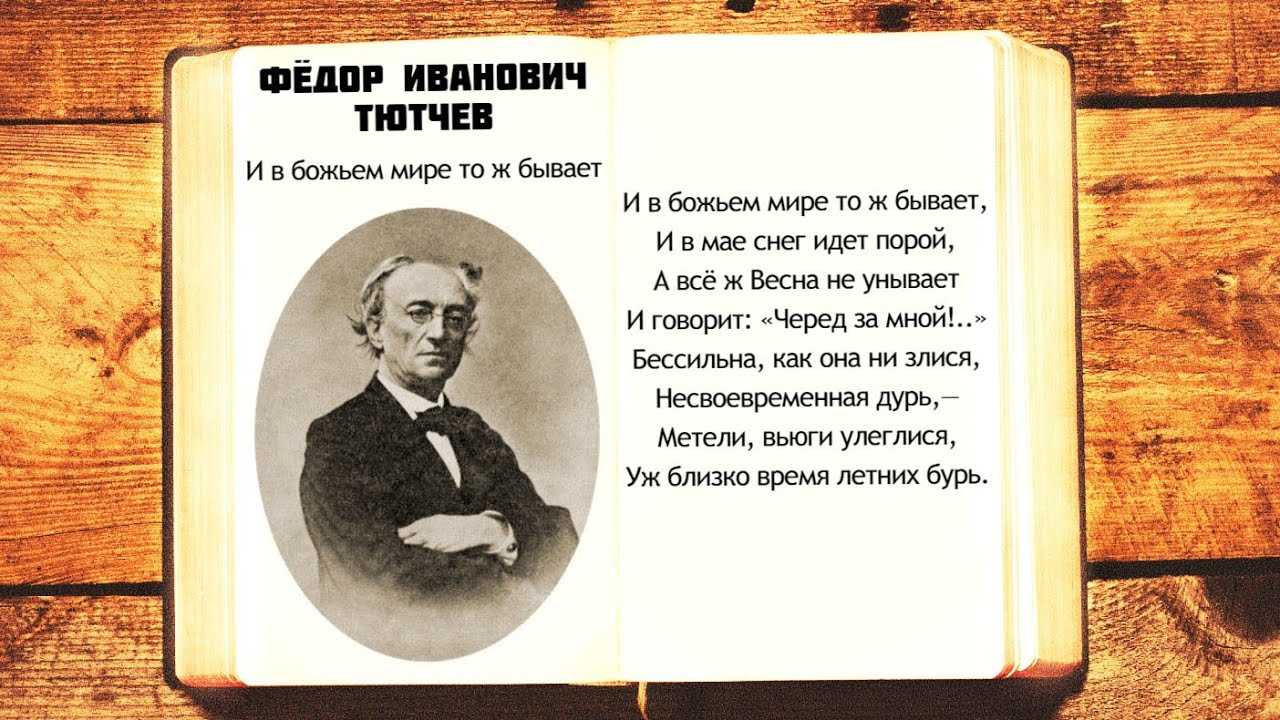 ФЁДОР ИВАНОВИЧ
ТЮТЧЕВ
И в божьем мире то ж бывает
И в божьем мире то ж бывает,
И в мае снег идет порой,
А всё ж Весна не унывает
И говорит: «Черед за мной!..»
Бессильна, как она ни злися,
Несвоевременная дурь,—
Метели, вьюги улеглися,
Уж близко время летних бурь.